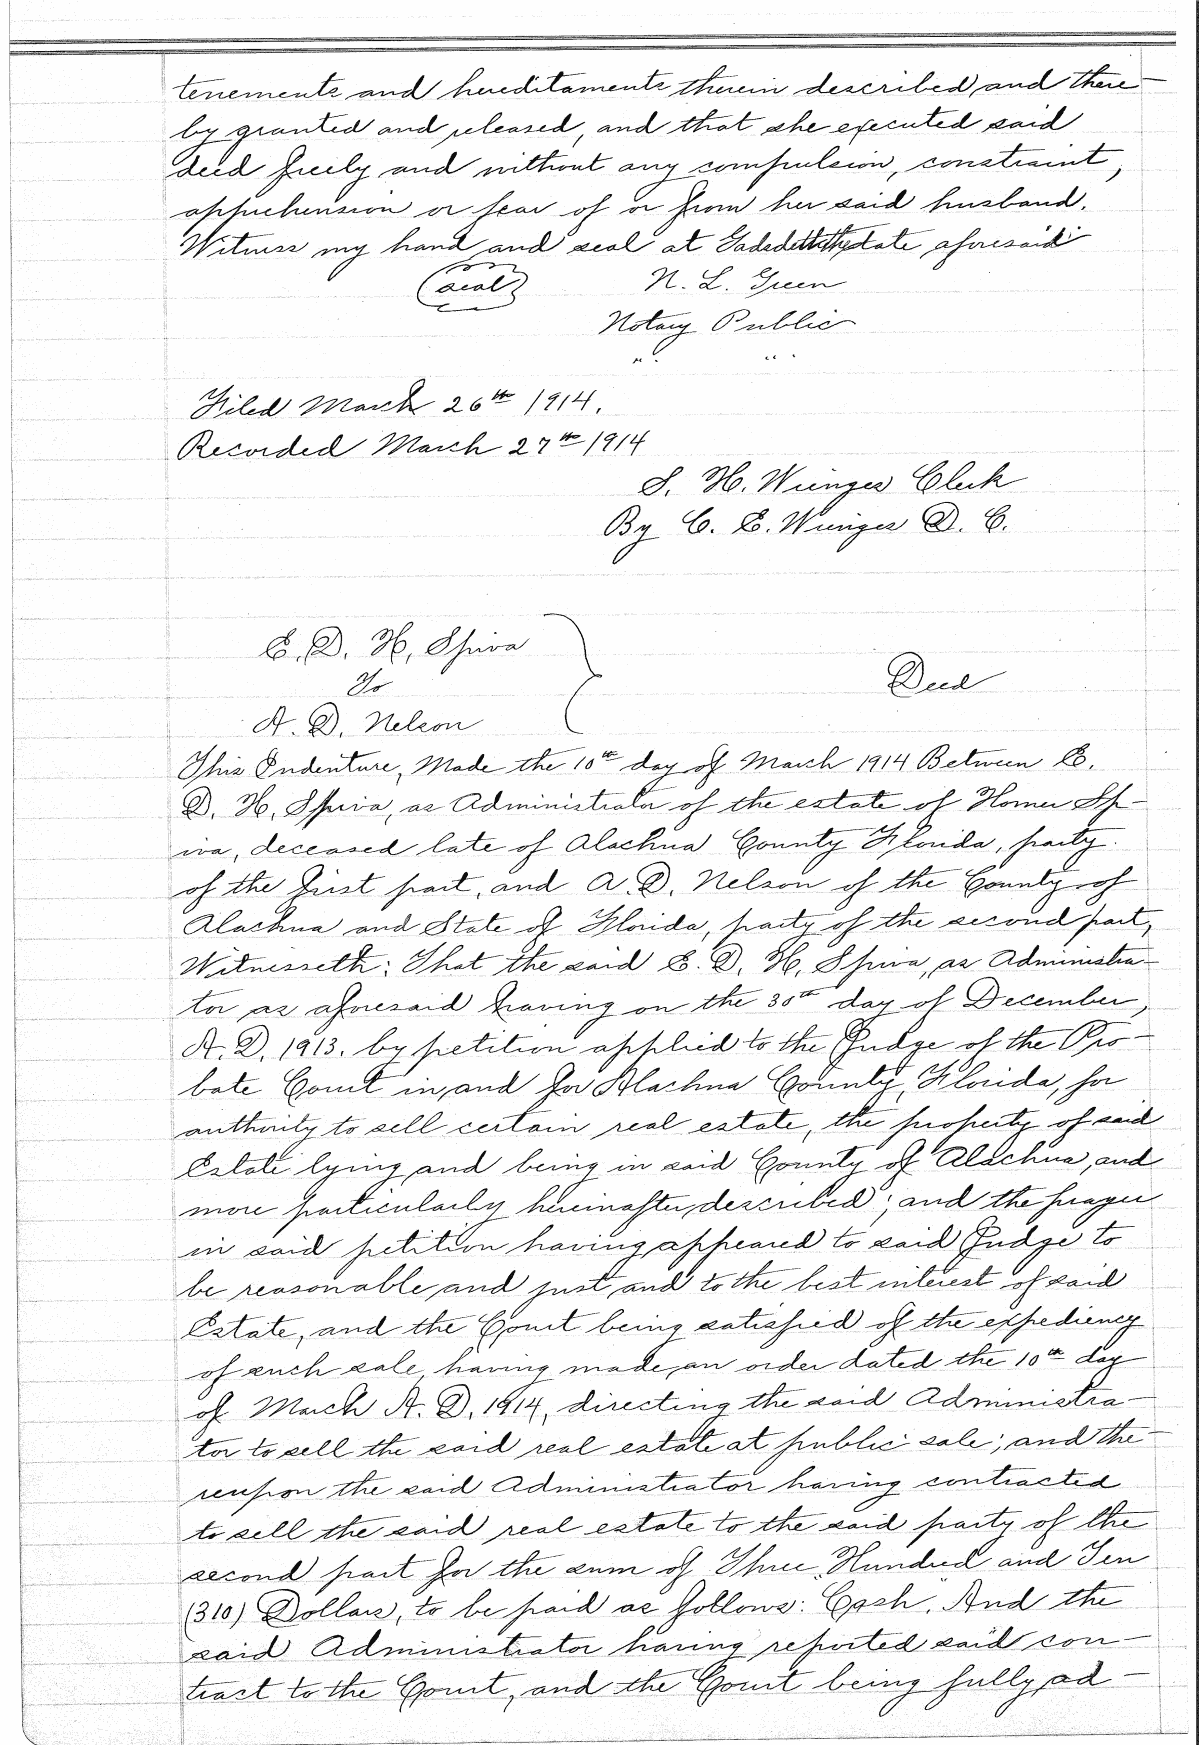 tenements and hereditaments therein described, and there-
by granted and released, and that she executed said
deed freely and without any compulsion, constraint,
apprehension or fear of or from her said husband.
Witness my hand and seal at state aforesaid
(seal) N. L. Green
Notary Public
" "
Filed March 26th 1914.
Recorded March 27th 1914
S. H. Wienges Clerk
By C. E. Wienges D. C.
E. D. H, Spiva
To
Deed
A. D. Nelson
This Indenture, Made the 10th day of March 1914 Between E.
D. H, Spiva, as Administrator of the estate of Homer Sp-
iva, deceased late of Alachua County Florida, party
of the first part, and A. D. Nelson of the County of
Alachua and State of Florida, party of the second part,
Witnesseth: That the said E. D. H, Spiva, as Administra-
tor as aforesaid having on the 30th day of December,
A. D. 1913. by petition applied to the Judge of the Pro-
bate Court in and for Alachua County, Florida, for
authority to sell certain real estate, the property of said
Estate lying and being in said County of Alachua, and
more particularly hereinafter described; and the prayer
in said petition having appeared to said Judge to
be reasonable and just and to the best interest of said
Estate, and the Court being satisfied of the expediency
of such sale, having made an order dated the 10th day
of March A. D. 1914, directing the said Administra-
tor to sell the said real estate at public sale; and the-
reupon the said Administrator having contracted
to sell the said real estate to the said party of the
second part for the sum of Three Hundred and Ten
(310) Dollars, to be paid as follows: Cash. And the
said Administrator having reported said con-
tract to the Court, and the Court being fully ad-